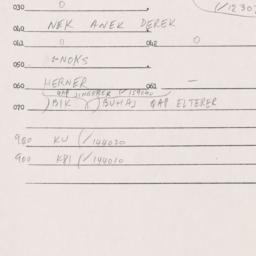 030 0 (/12307
040 NEK ANEK DEREK
041 0 042 0
050 ÷NOKS
060 HERNER 061 —
QAP JINGERER (/159040
070 )BIK )( BUHAJ QAP ELTERER
900 KU (/144020
900 KPI (/144010